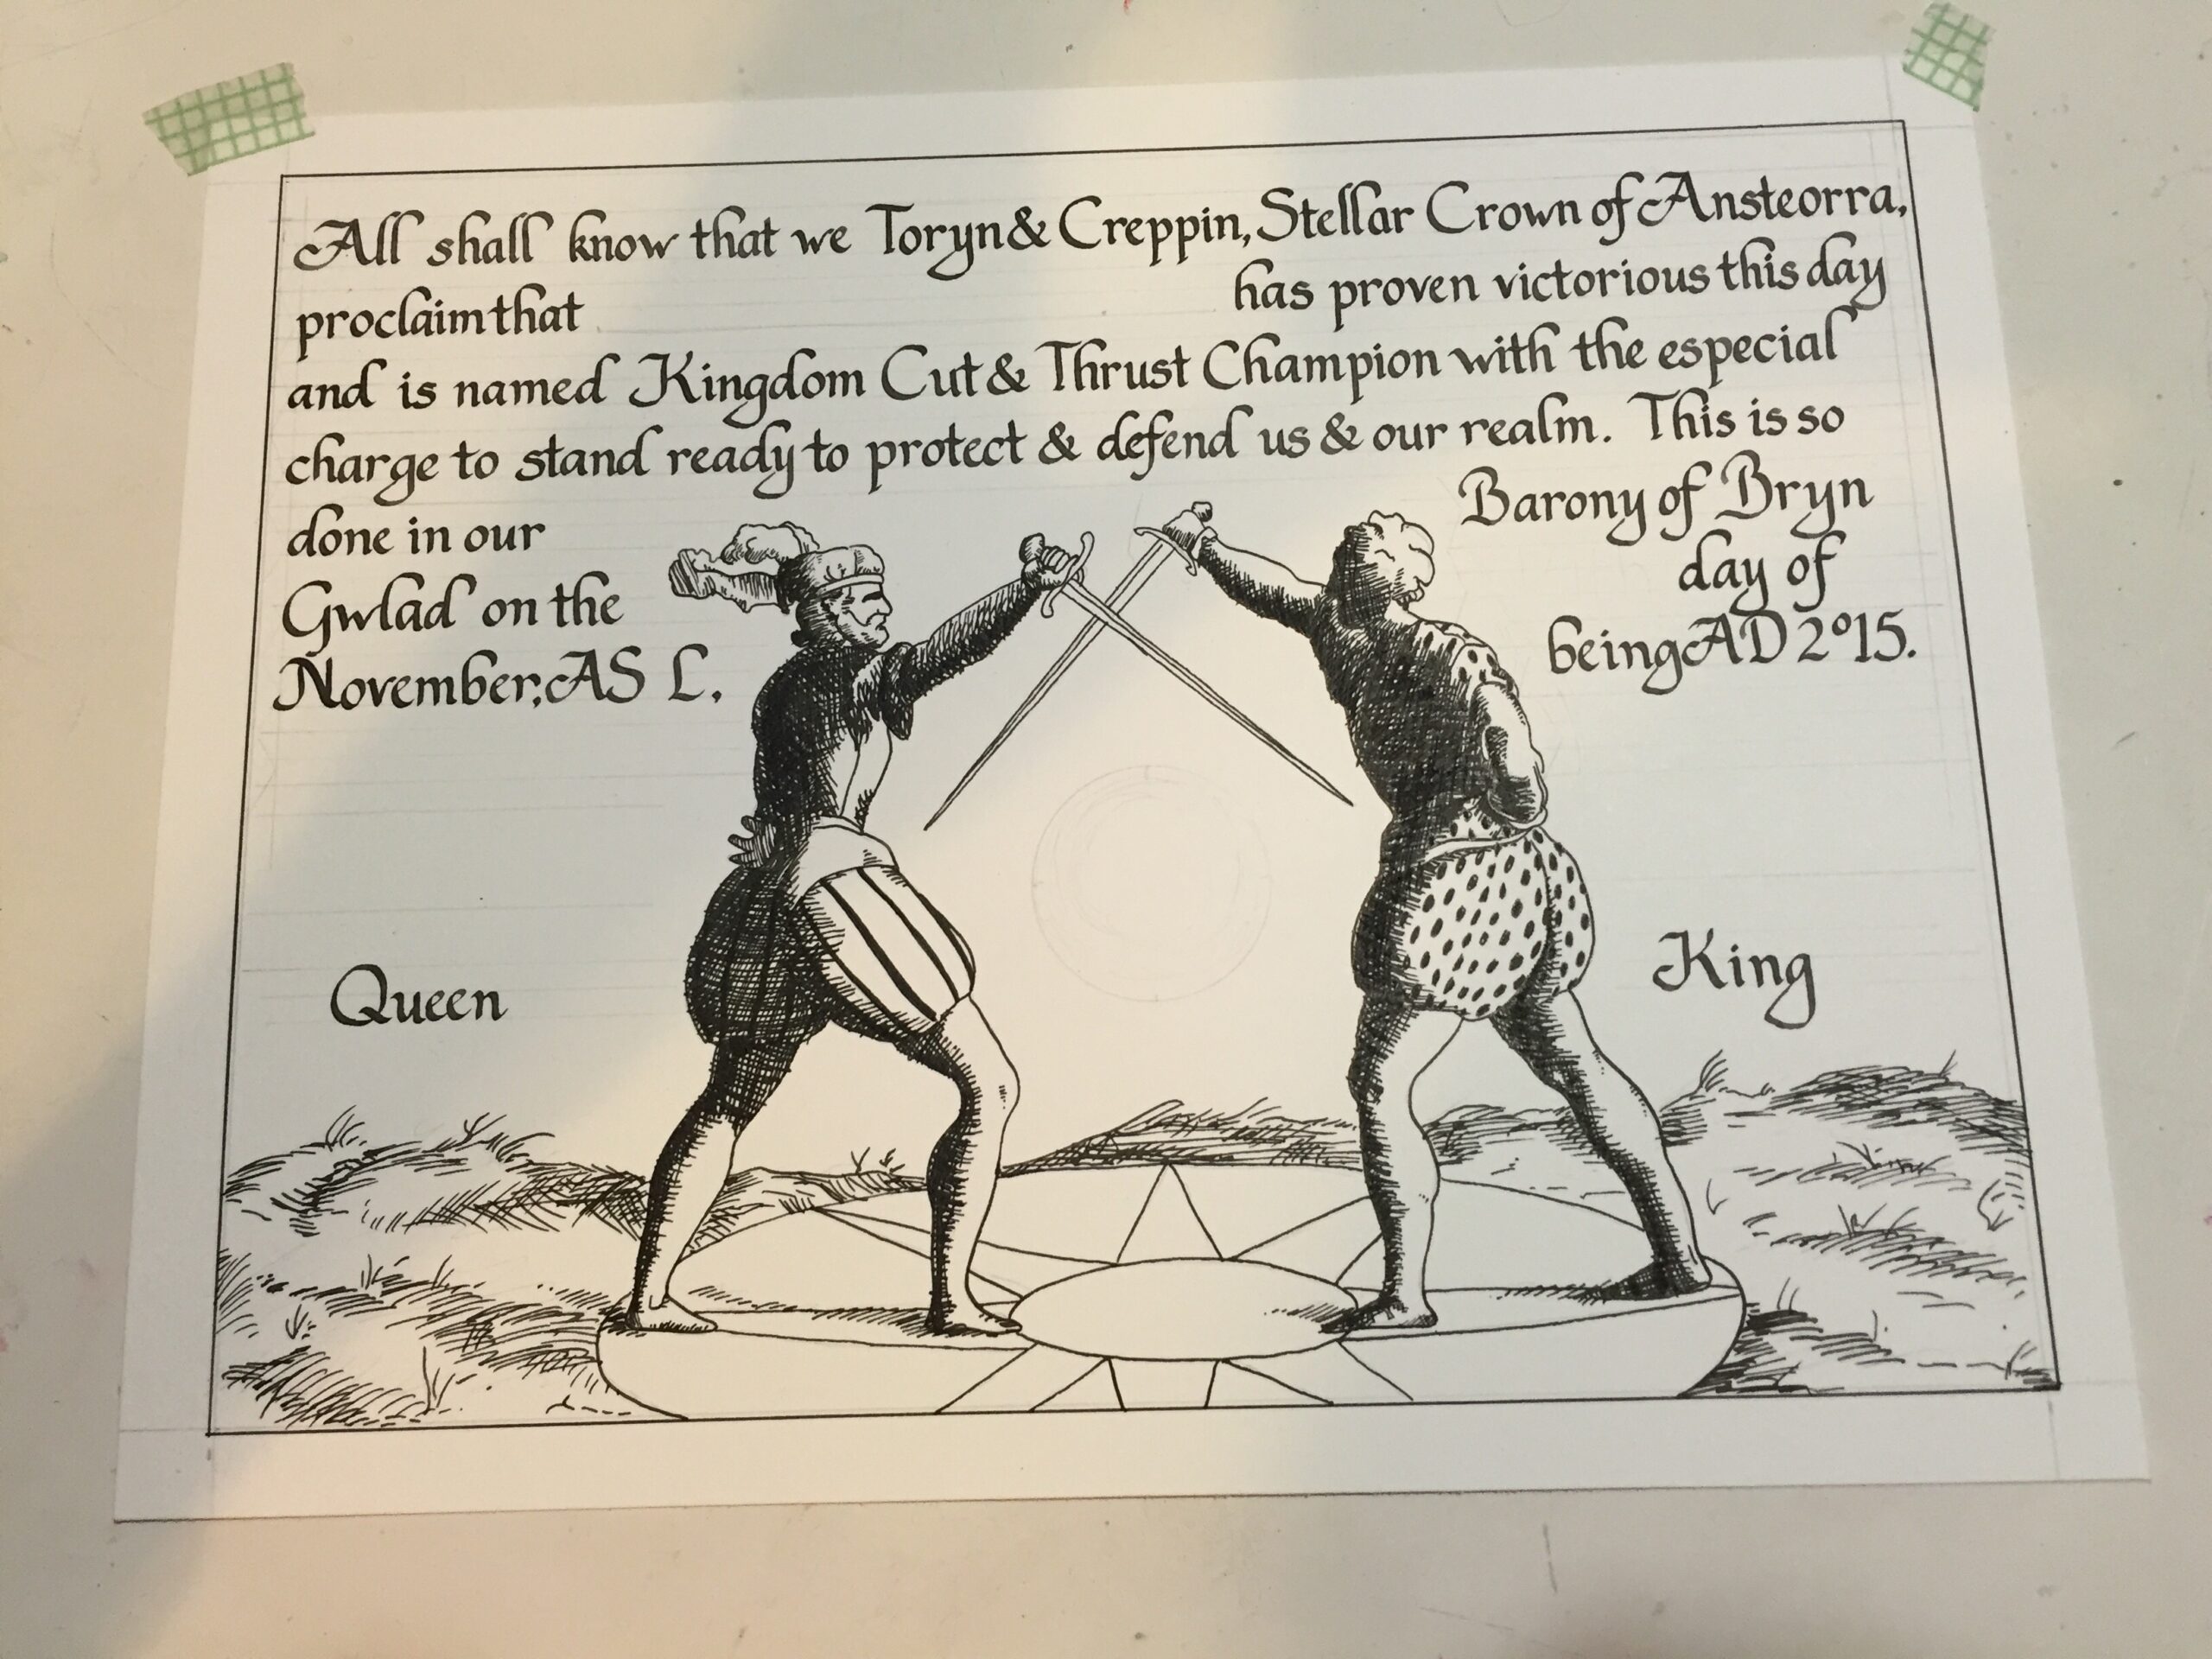 All shall know that we Toryn & Creppin, Stellar Crown of Ansteorra,
proclaim that has proven victorious this day
and is named Kingdom Cut & Thrust Champion with the especial
charge to stand ready to protect & defend us & our realm. This is so
done in our Barony of Bryn
Gwlad on the day of
November, AS L, being AD 2015.
Queen King